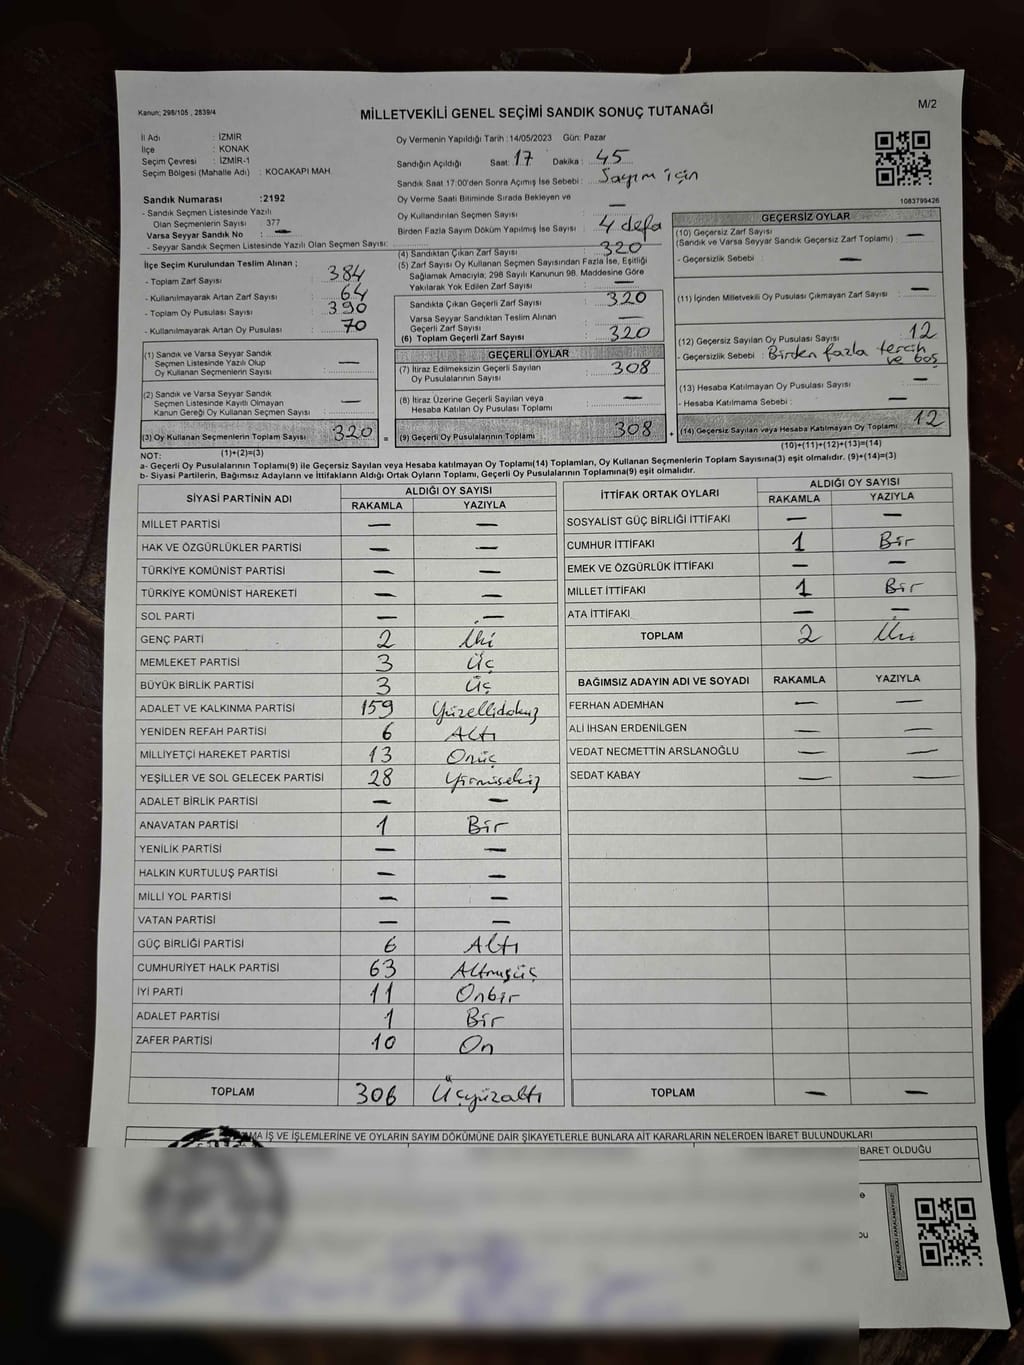 Kanun; 298/105 , 2839/4
MİLLETVEKİLİ GENEL SEÇİMİ SANDIK SONUÇ TUTANAĞI
M/2
İl Adı : İZMİR
İlçe : KONAK
Seçim Çevresi : İZMİR-1
Seçim Bölgesi (Mahalle Adı) : KOCAKAPI MAH.
Oy Vermenin Yapıldığı Tarih : 14/05/2023 Gün: Pazar
Sandığın Açıldığı Saat: 17 Dakika : 45
Sandık Saat 17:00'den Sonra Açılmış İse Sebebi : Sayım için
Oy Verme Saati Bitiminde Sırada Bekleyen ve
Oy Kullandırılan Seçmen Sayısı : —
Birden Fazla Sayım Döküm Yapılmış İse Sayısı : 4 defa
1083799426
Sandık Numarası : 2192
- Sandık Seçmen Listesinde Yazılı
Olan Seçmenlerin Sayısı : 377
Varsa Seyyar Sandık No : —
- Seyyar Sandık Seçmen Listesinde Yazılı Olan Seçmen Sayısı:
İlçe Seçim Kurulundan Teslim Alınan ;
- Toplam Zarf Sayısı : 384
- Kullanılmayarak Artan Zarf Sayısı : 64
- Toplam Oy Pusulası Sayısı : 390
- Kullanılmayarak Artan Oy Pusulası : 70
(1) Sandık ve Varsa Seyyar Sandık
Seçmen Listesinde Yazılı Olup
Oy Kullanan Seçmenlerin Sayısı : —
(2) Sandık ve Varsa Seyyar Sandık
Seçmen Listesinde Kayıtlı Olmayan
Kanun Gereği Oy Kullanan Seçmen Sayısı : —
(3) Oy Kullanan Seçmenlerin Toplam Sayısı 320 =
(1)+(2)=(3)
(4) Sandıktan Çıkan Zarf Sayısı : 320
(5) Zarf Sayısı Oy Kullanan Seçmen Sayısından Fazla İse, Eşitliği
Sağlamak Amacıyla; 298 Sayılı Kanunun 98. Maddesine Göre
Yakılarak Yok Edilen Zarf Sayısı : —
Sandıkta Çıkan Geçerli Zarf Sayısı : 320
Varsa Seyyar Sandıktan Teslim Alınan
Geçerli Zarf Sayısı : —
(6) Toplam Geçerli Zarf Sayısı : 320
GEÇERLİ OYLAR
(7) İtiraz Edilmeksizin Geçerli Sayılan
Oy Pusulalarının Sayısı : 308
(8) İtiraz Üzerine Geçerli Sayılan veya
Hesaba Katılan Oy Pusulası Toplamı : —
(9) Geçerli Oy Pusulalarının Toplamı 308 +
GEÇERSİZ OYLAR
(10) Geçersiz Zarf Sayısı
(Sandık ve Varsa Seyyar Sandık Geçersiz Zarf Toplamı) : —
- Geçersizlik Sebebi : —
(11) İçinden Milletvekili Oy Pusulası Çıkmayan Zarf Sayısı : —
(12) Geçersiz Sayılan Oy Pusulası Sayısı : 12
- Geçersizlik Sebebi : Birden fazla tercih
ve boş
(13) Hesaba Katılmayan Oy Pusulası Sayısı : —
- Hesaba Katılmama Sebebi : —
(14) Geçersiz Sayılan veya Hesaba Katılmayan Oy Toplamı 12
(10)+(11)+(12)+(13)=(14)
NOT:
a- Geçerli Oy Pusulalarının Toplamı(9) ile Geçersiz Sayılan veya Hesaba katılmayan Oy Toplamı(14) Toplamları, Oy Kullanan Seçmenlerin Toplam Sayısına(3) eşit olmalıdır. (9)+(14)=(3)
b- Siyasi Partilerin, Bağımsız Adayların ve İttifakların Aldığı Ortak Oyların Toplamı, Geçerli Oy Pusulalarının Toplamına(9) eşit olmalıdır.
SİYASİ PARTİNİN ADI ALDIĞI OY SAYISI
RAKAMLA YAZIYLA
MİLLET PARTİSİ — —
HAK VE ÖZGÜRLÜKLER PARTİSİ — —
TÜRKİYE KOMÜNİST PARTİSİ — —
TÜRKİYE KOMÜNİST HAREKETİ — —
SOL PARTİ — —
GENÇ PARTİ 2 İki
MEMLEKET PARTİSİ 3 Üç
BÜYÜK BİRLİK PARTİSİ 3 Üç
ADALET VE KALKINMA PARTİSİ 159 Yüzellidokuz
YENİDEN REFAH PARTİSİ 6 Altı
MİLLİYETÇİ HAREKET PARTİSİ 13 Onüç
YEŞİLLER VE SOL GELECEK PARTİSİ 28 Yirmisekiz
ADALET BİRLİK PARTİSİ — —
ANAVATAN PARTİSİ 1 Bir
YENİLİK PARTİSİ — —
HALKIN KURTULUŞ PARTİSİ — —
MİLLİ YOL PARTİSİ — —
VATAN PARTİSİ — —
GÜÇ BİRLİĞİ PARTİSİ 6 Altı
CUMHURİYET HALK PARTİSİ 63 Altmışüç
İYİ PARTİ 11 Onbir
ADALET PARTİSİ 1 Bir
ZAFER PARTİSİ 10 On
TOPLAM 306 Üçyüzaltı
İTTİFAK ORTAK OYLARI ALDIĞI OY SAYISI
RAKAMLA YAZIYLA
SOSYALİST GÜÇ BİRLİĞİ İTTİFAKI — —
CUMHUR İTTİFAKI 1 Bir
EMEK VE ÖZGÜRLÜK İTTİFAKI — —
MİLLET İTTİFAKI 1 Bir
ATA İTTİFAKI — —
TOPLAM 2 İki
BAĞIMSIZ ADAYIN ADI VE SOYADI RAKAMLA YAZIYLA
FERHAN ADEMHAN — —
ALİ İHSAN ERDENİLGEN — —
VEDAT NECMETTİN ARSLANOĞLU — —
SEDAT KABAY — —
TOPLAM — —
MA İŞ VE İŞLEMLERİNE VE OYLARIN SAYIM DÖKÜMÜNE DAİR ŞİKAYETLERLE BUNLARA AİT KARARLARIN NELERDEN İBARET BULUNDUKLARI
BARET OLDUĞU